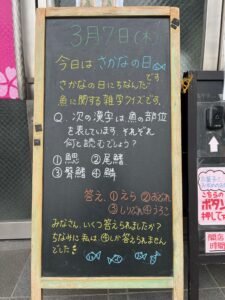 3月7日(木)
今日は さかなの日
です
さかなの日にちなんだ
魚に関する雑学クイズです。
Q. 次の漢字は魚の部位
を表しています。それぞれ
何と読むでしょう?
①鰓 ②尾鰭
③臀鰭 ④鱗
答え. ①えら ②おびれ
③しりびれ ④うろこ
みなさん、いくつ答えられましたか?
ちなみに私は、④しか答えられません
でした!
こちらの
ボタン
押して
開店
時間